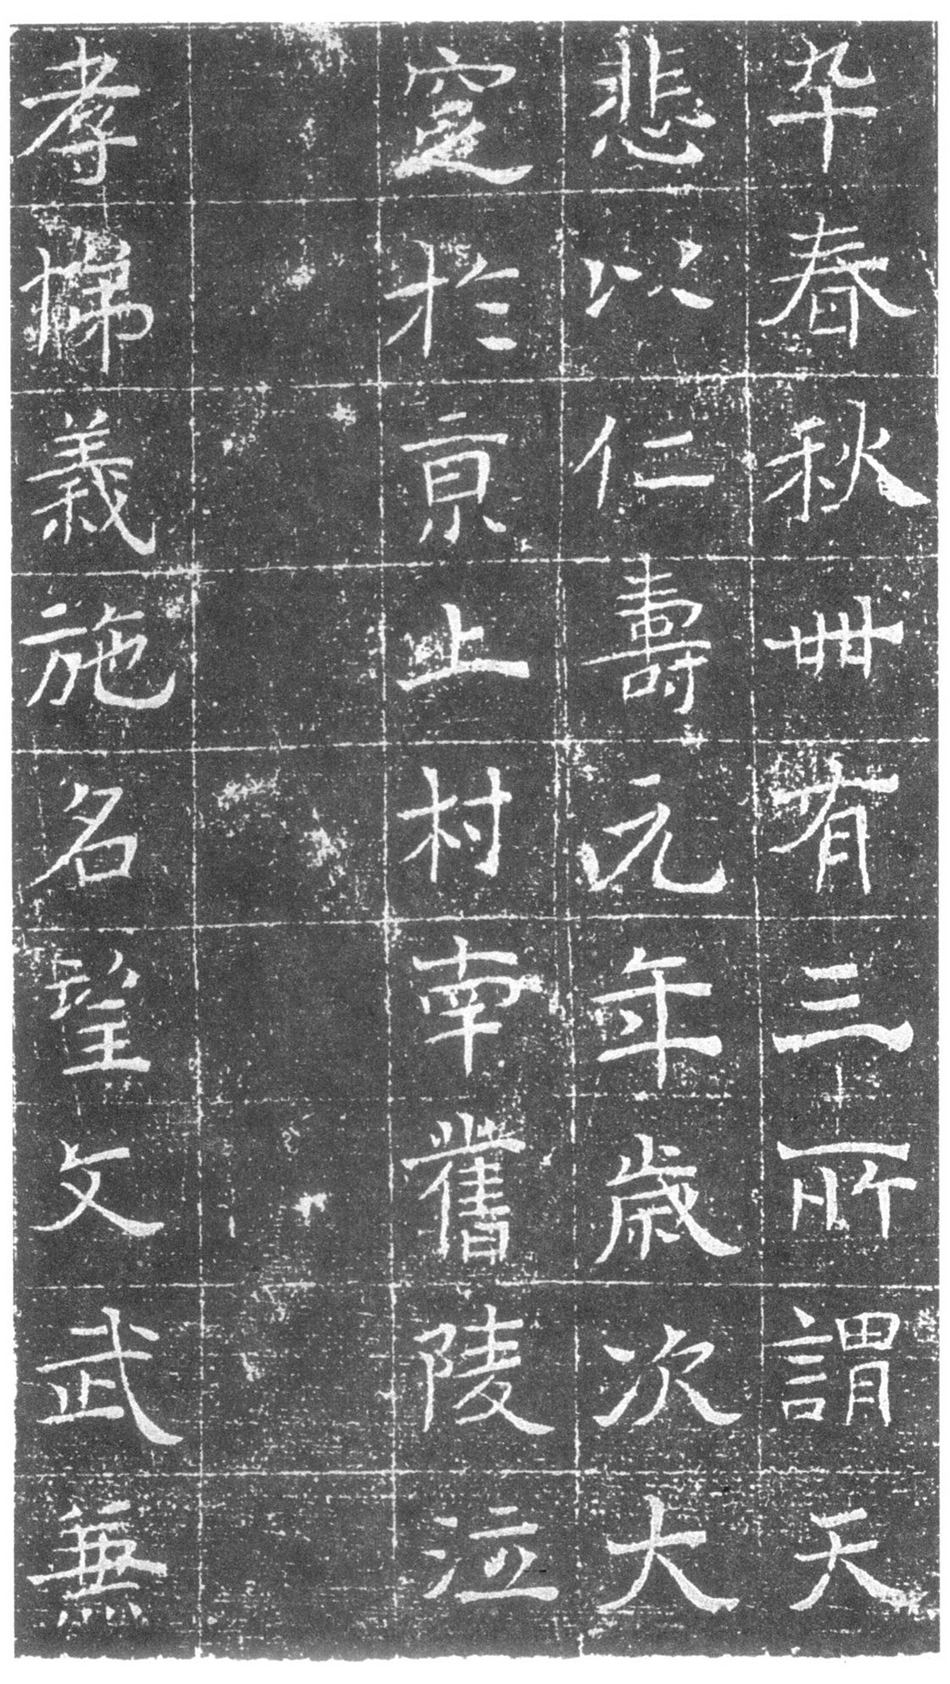 卆春秋卌有三所謂天
悲以仁壽元年歲次大
窆於亰止村南舊陵泣
孝悌義施名望文武兼